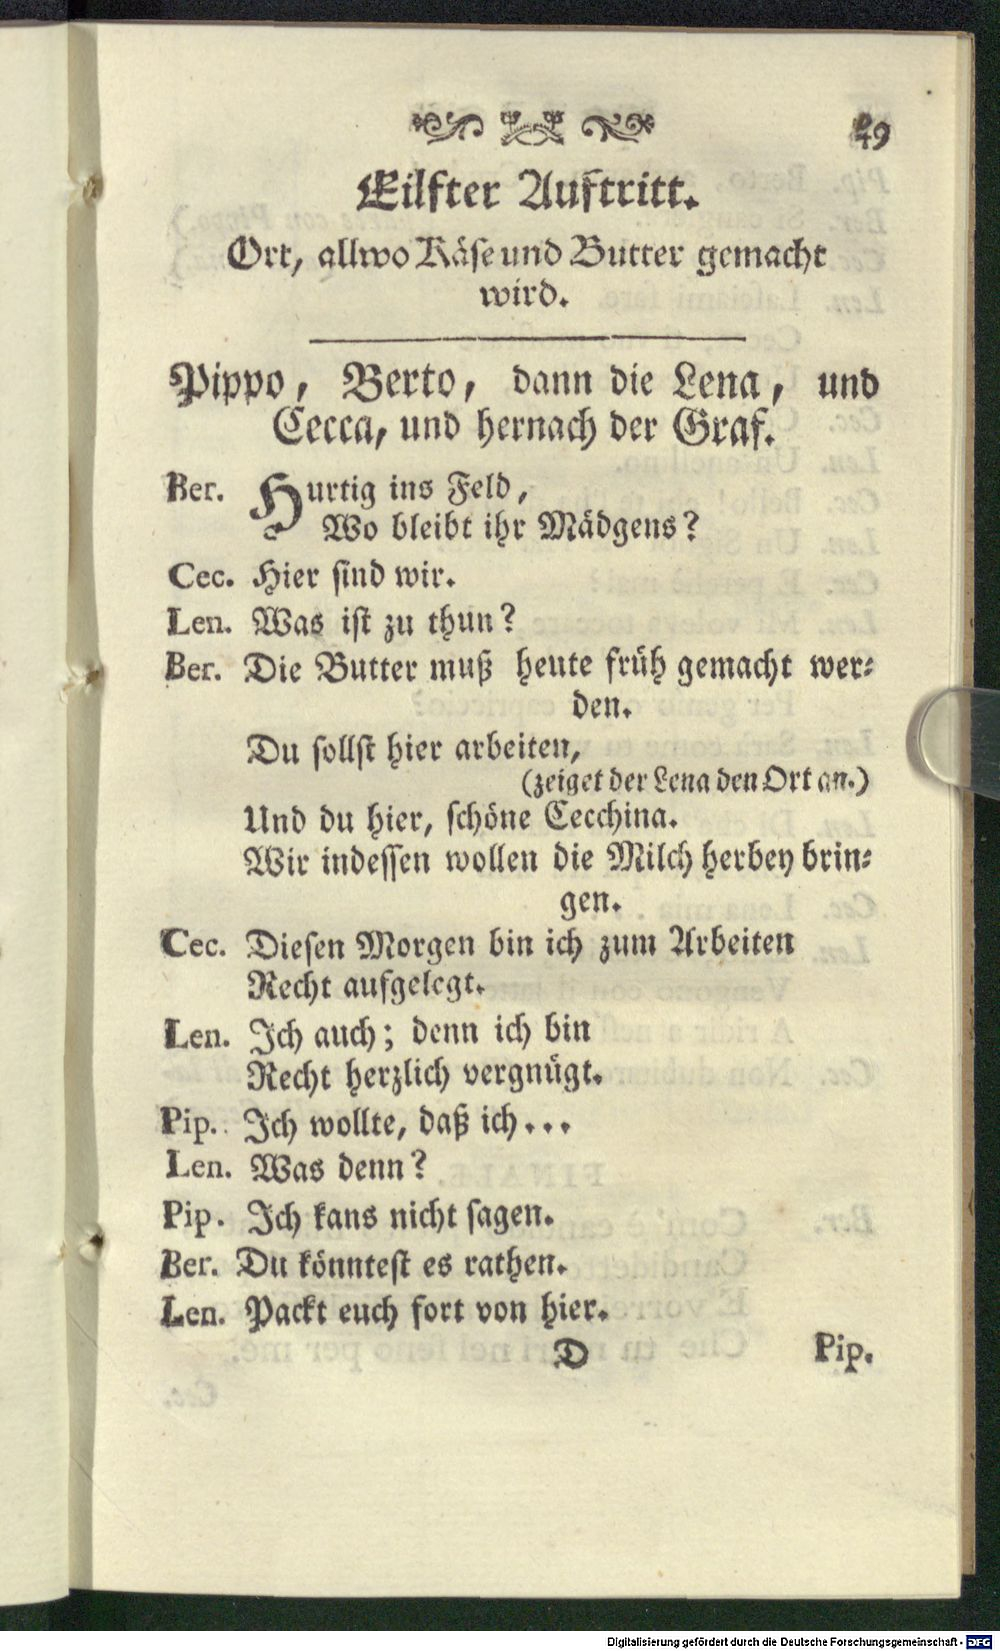 49
Eilfter Auftritt.
Ort, allwo Käse und Butter gemacht
wird.
Pippo, Berto, dann die Lena, und
Cecca, und hernach der Graf.
Ber. Hurtig ins Feld,
Wo bleibt ihr Mädgens?
Cec. Hier sind wir.
Len. Was ist zu thun?
Ber. Die Butter muß heute früh gemacht wer-
den.
Du sollst hier arbeiten,
(zeiget der Lena den Ort an.)
Und du hier, schöne Cecchina.
Wir indessen wollen die Milch herbey brin-
gen.
Cec. Diesen Morgen bin ich zum Arbeiten
Recht aufgelegt.
Len. Ich auch; denn ich bin
Recht herzlich vergnügt.
Pip. Ich wollte, daß ich...
Len. Was denn?
Pip. Ich kans nicht sagen.
Ber. Du könntest es rathen.
Len. Packt euch fort von hier.
D Pip.
Digitalisierung gefördert durch die Deutsche Forschungsgemeinschaft - DFG